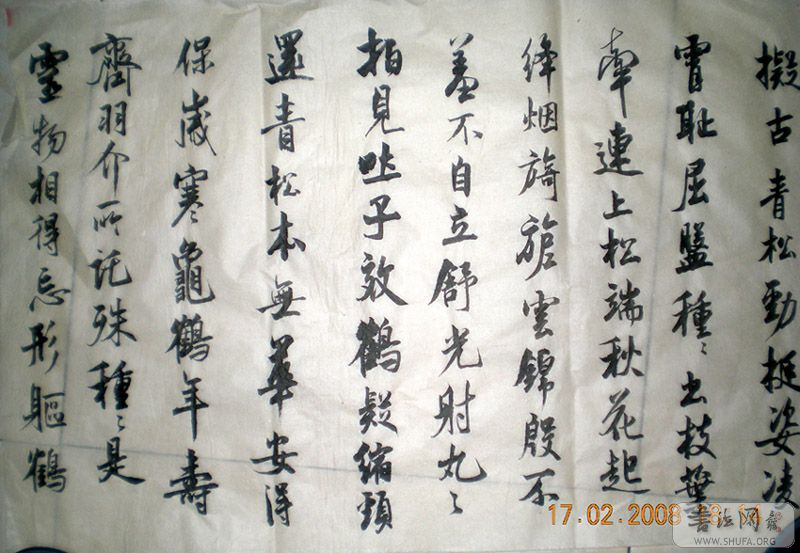 擬古青松勁挺姿凌
霄耻屈盤種〻出枝葉
牽連上松端秋花起
絳烟旖旎雲錦殷不
羞不自立舒光射丸〻
柏見吐子效鶴疑縮頸
還青松本無華安得
保歲寒龜鶴年壽
齊羽介所託殊種〻是
靈物相得忘形軀鶴
17.02.2008
书法网
WWW.SHUFA.ORG